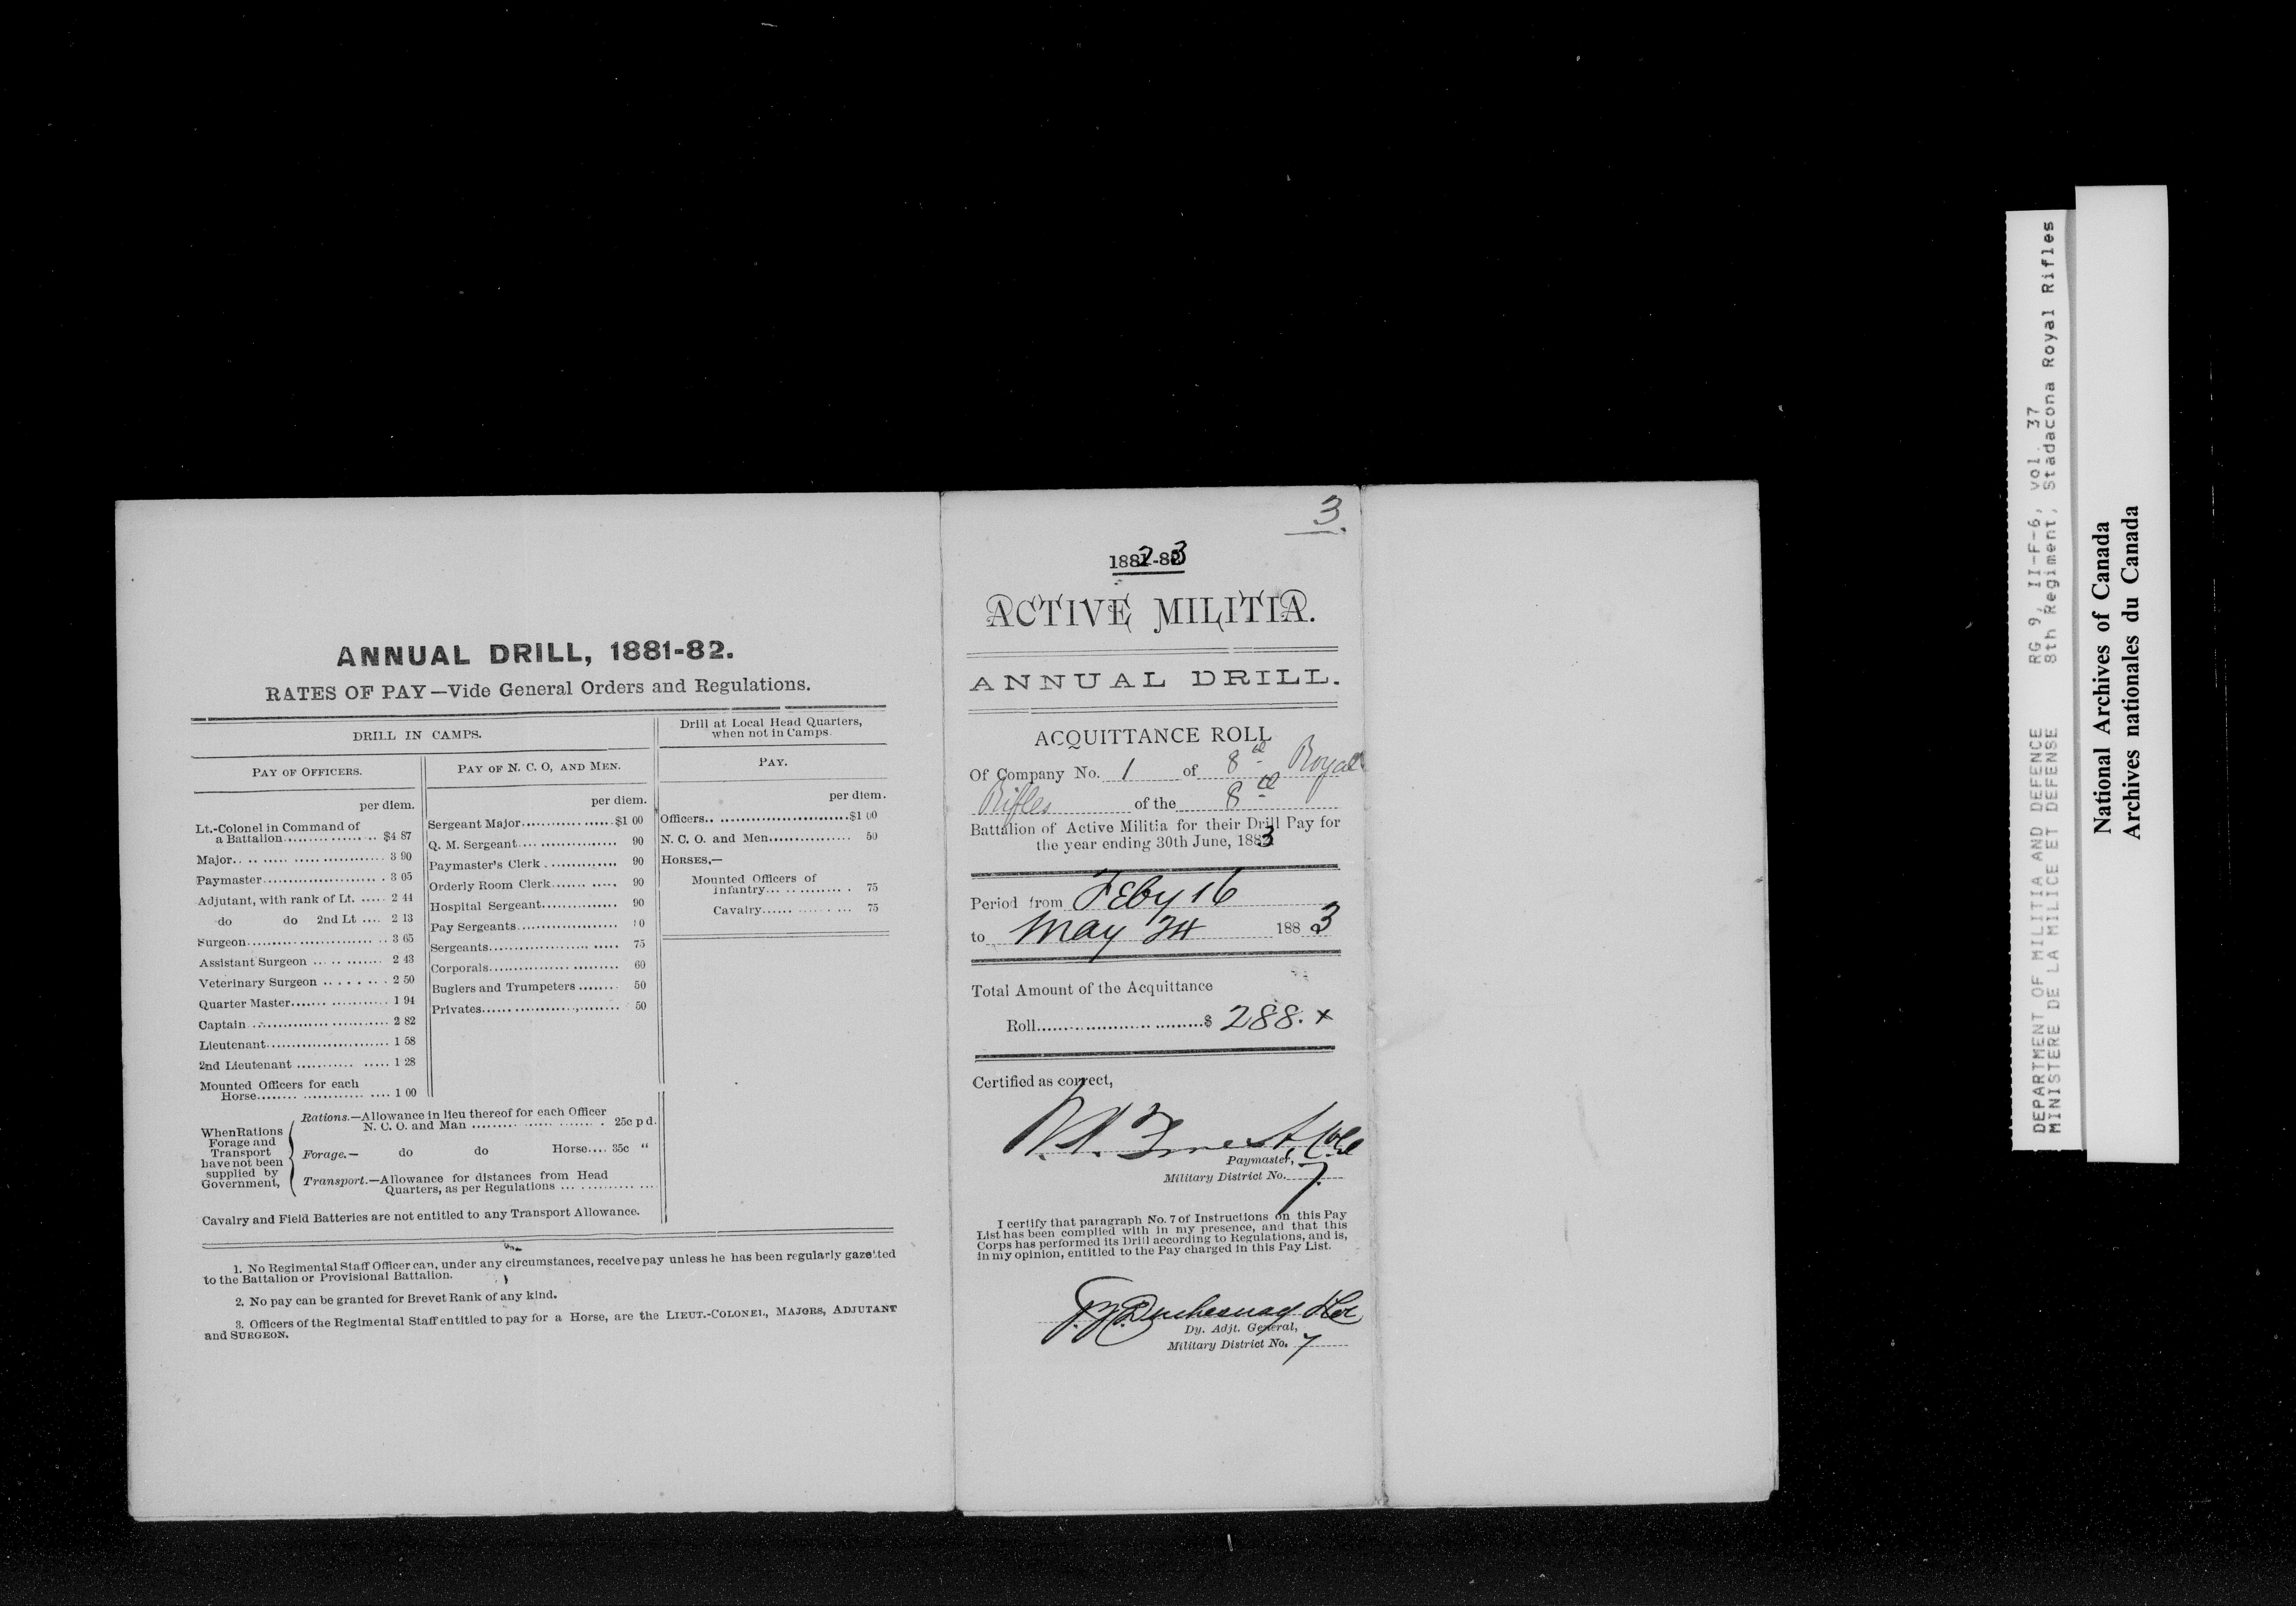 ANNUAL DRILL, 1881-82.
RATES OF PAY—Vide General Orders and Regulations.
DRILL IN CAMPS.
PAY OF OFFICERS.
per diem.
Lt.-Colonel in Command of
a Battalion $4 87
Major 3 90
Paymaster 3 05
Adjutant, with rank of Lt. 2 44
do do 2nd Lt 2 13
Surgeon 3 65
Assistant Surgeon 2 43
Veterinary Surgeon 2 50
Quarter Master 1 94
Captain 2 82
Lieutenant 1 58
2nd Lieutenant 1 28
Mounted Officers for each
Horse 1 00
PAY OF N. C. O, AND MEN.
per diem.
Sergeant Major $1 00
Q. M. Sergeant 90
Paymaster's Clerk 90
Orderly Room Clerk 90
Hospital Sergeant 90
Pay Sergeants
Sergeants 75
Corporals 60
Buglers and Trumpeters 50
Privates 50
Drill at Local Head Quarters,
when not in Camps.
PAY.
per diem.
Officers $1 00
N. C. O. and Men 50
HORSES,—
Mounted Officers of
Infantry 75
Cavalry 75
When Rations
Forage and
Transport
have not been
supplied by
Government,
Rations.—Allowance in lieu thereof for each Officer
N. C. O. and Man 25c p d.
Forage.— do do Horse 35c “
Transport.—Allowance for distances from Head
Quarters, as per Regulations
Cavalry and Field Batteries are not entitled to any Transport Allowance.
1. No Regimental Staff Officer can, under any circumstances, receive pay unless he has been regularly gazetted
to the Battalion or Provisional Battalion.
2. No pay can be granted for Brevet Rank of any kind.
3. Officers of the Regimental Staff entitled to pay for a Horse, are the LIEUT.-COLONEL, MAJORS, ADJUTANT
and SURGEON.
3.
1882-83
ACTIVE MILITIA.
ANNUAL DRILL.
ACQUITTANCE ROLL
Of Company No. 1 of 8th Royal
Rifles of the 8th
Battalion of Active Militia for their Drill Pay for
the year ending 30th June, 1883
Period from Feby 16
to May 24 1883
Total Amount of the Acquittance
Roll $ 288. x
Certified as correct,
Paymaster,
Military District No. 7.
I certify that paragraph No. 7 of Instructions on this Pay
List has been complied with in my presence, and that this
Corps has performed its Drill according to Regulations, and is,
in my opinion, entitled to the Pay charged in this Pay List.
Duchesnay
Dy. Adjt. General,
Military District No. 7
DEPARTMENT OF MILITIA AND DEFENCE RG 9, II-F-6, vol. 37
MINISTERE DE LA MILICE ET DEFENSE 8th Regiment, Stadacona Royal Rifles
National Archives of Canada
Archives nationales du Canada